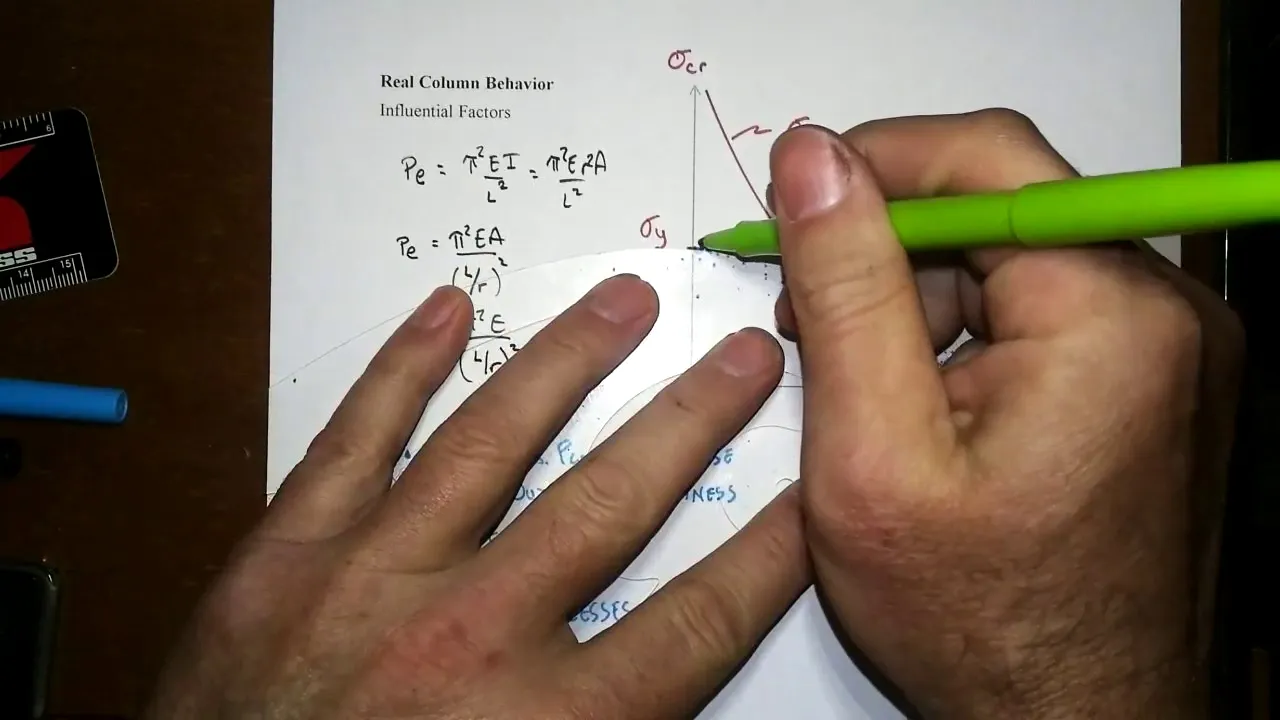 Real Column Behavior
Influential Factors
σcr
Pe = π²EI/L² = π²Er²A/L²
σy
Pe = π²EA/(L/r)²
²E/(L/r)²
SE
NESS
ESSES
6
SS
14 15